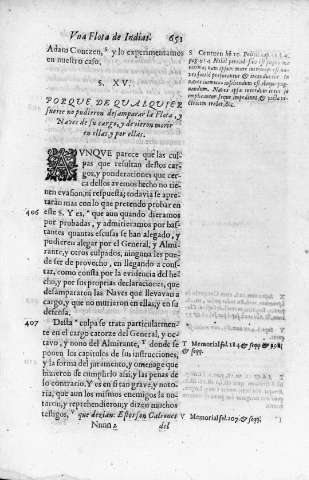 Vna Flota de Indias. 653
Adam Contzen, S y lo experimentamos
en nuestro caso.
§. XV.
PORQUE DE QUALQUIER
suerte no pudieron desamparar la Flota, y
Naves de su cargo, y devieron morir
en ellas, y por ellas.
AVNQVE parece que las cul-
pas que resultan destos car-
gos, y ponderaciones que cer-
ca dellos avemos hecho no tie-
nen evasion, ni respuesta; todavia se apre-
tarán mas con lo que pretendo probar en
406 este §. Y es, que aun quando dieramos
por probadas, y admitieramos por bas-
tantes quantas escusas se han alegado, y
pudieren alegar por el General, y Almi-
rante, y otros culpados, ninguna les pue-
de ser de provecho, en llegando a cons-
tar, como consta por la evidencia del he-
cho, y por sus proprias declaraciones, que
desampararon las Naves que llevavan a
cargo, y que no murieron en ellas, y en su
defensa.
407 Desta culpa se trata particularmen-
te en el cargo catorze del General, y oc-
tavo, y nono del Almirante, T donde se
ponen los capitulos de sus instrucciones,
y la forma del juramento, omenage que
hizieron de cumplirlo assi, y las penas de
lo contrario. Y es en si tan grave, y noto-
ria, que aun los mismos enemigos la no-
taron, y reprehendieron; y dizen muchos
testigos, V que dezian: Esperson Calrones
Nnnn 2 del
S Contzen
T Memorial fol. 184. & seqq. & 198.
& seqq.
V Memorial fol. 207. & seqq.